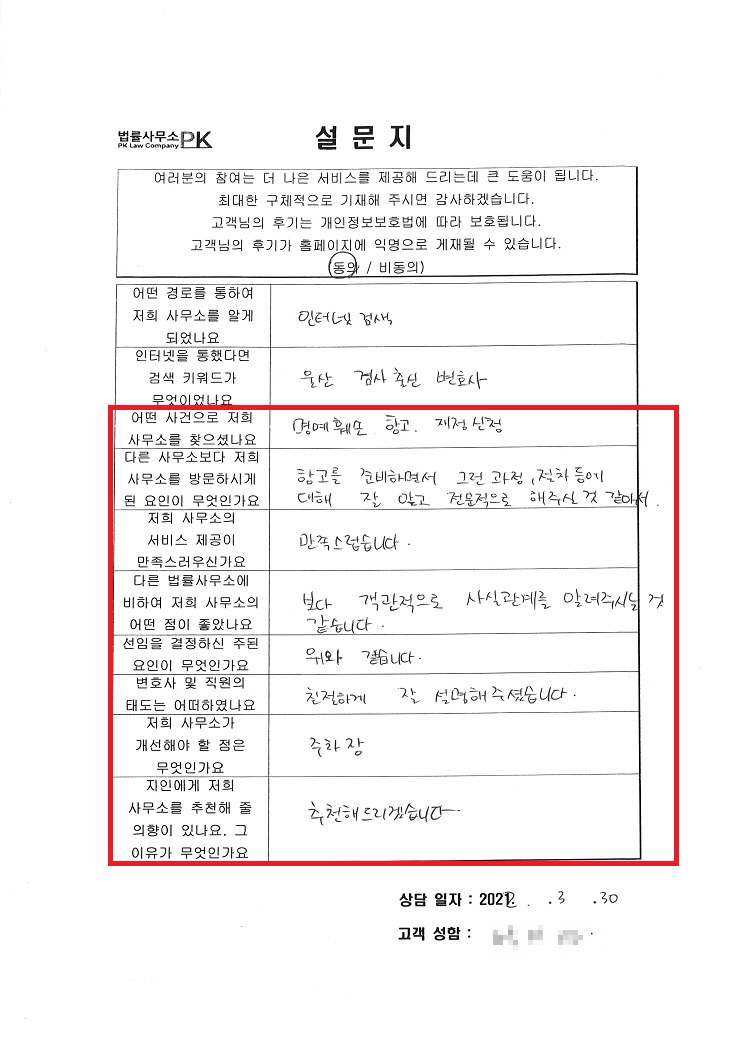 법률사무소PK
PK Law Company
설 문 지
여러분의 참여는 더 나은 서비스를 제공해 드리는데 큰 도움이 됩니다.
최대한 구체적으로 기재해 주시면 감사하겠습니다.
고객님의 후기는 개인정보보호법에 따라 보호됩니다.
고객님의 후기가 홈페이지에 익명으로 게재될 수 있습니다.
(동의 / 비동의)
어떤 경로를 통하여
저희 사무소를 알게
되었나요
인터넷 검색
인터넷을 통했다면
검색 키워드가
무엇이었나요
울산 검사 출신 변호사
어떤 사건으로 저희
사무소를 찾으셨나요
명예훼손 항고. 재정신청
다른 사무소보다 저희
사무소를 방문하시게
된 요인이 무엇인가요
항고를 준비하면서 그런 과정, 절차 등에
대해 잘 알고 전문적으로 해주실 것 같아서.
저희 사무소의
서비스 제공이
만족스러우신가요
만족스럽습니다.
다른 법률사무소에
비하여 저희 사무소의
어떤 점이 좋았나요
보다 객관적으로 사실관계를 알려주시는 것
같습니다.
선임을 결정하신 주된
요인이 무엇인가요
위와 같습니다.
변호사 및 직원의
태도는 어떠하였나요
친절하게 잘 설명해주셨습니다.
저희 사무소가
개선해야 할 점은
무엇인가요
주차장
지인에게 저희
사무소를 추천해 줄
의향이 있나요. 그
이유가 무엇인가요
추천해드리겠습니다
상담 일자 : 2022 . 3 . 30
고객 성함 :